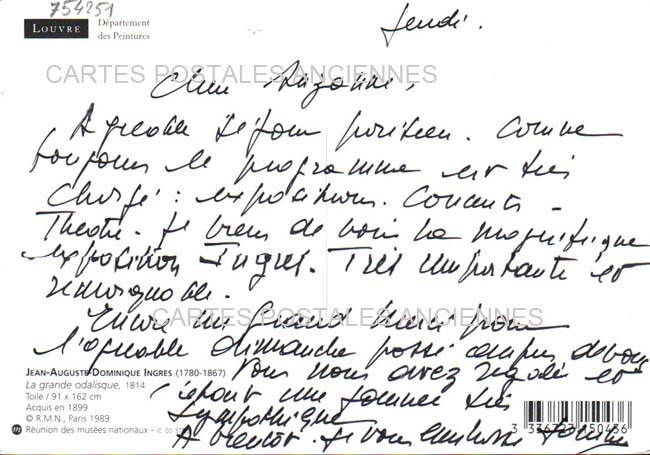 754251
LOUVRE
Département
des Peintures
Jeudi.
CARTES POSTALES ANCIENNES
Chère Suzanne,
Agréable séjour parisien. Comme
toujours le programme est très
chargé : expositions. Concerts -
Théâtre. Je viens de voir la magnifique
exposition Ingres. Très importante et
remarquable.
CARTES POSTALES ANCIENNES
Encore un grand merci pour
l'agréable dimanche passé auprès de vous
Vous nous avez régalés et
ce fut une journée très
sympathique
A bientôt. Je vous embrasse
JEAN-AUGUSTE-DOMINIQUE INGRES (1780-1867)
La grande odalisque, 1814
Toile / 91 x 162 cm
Acquis en 1899
© R.M.N., Paris 1989
m Réunion des musées nationaux - IC 00
3 336727 150436